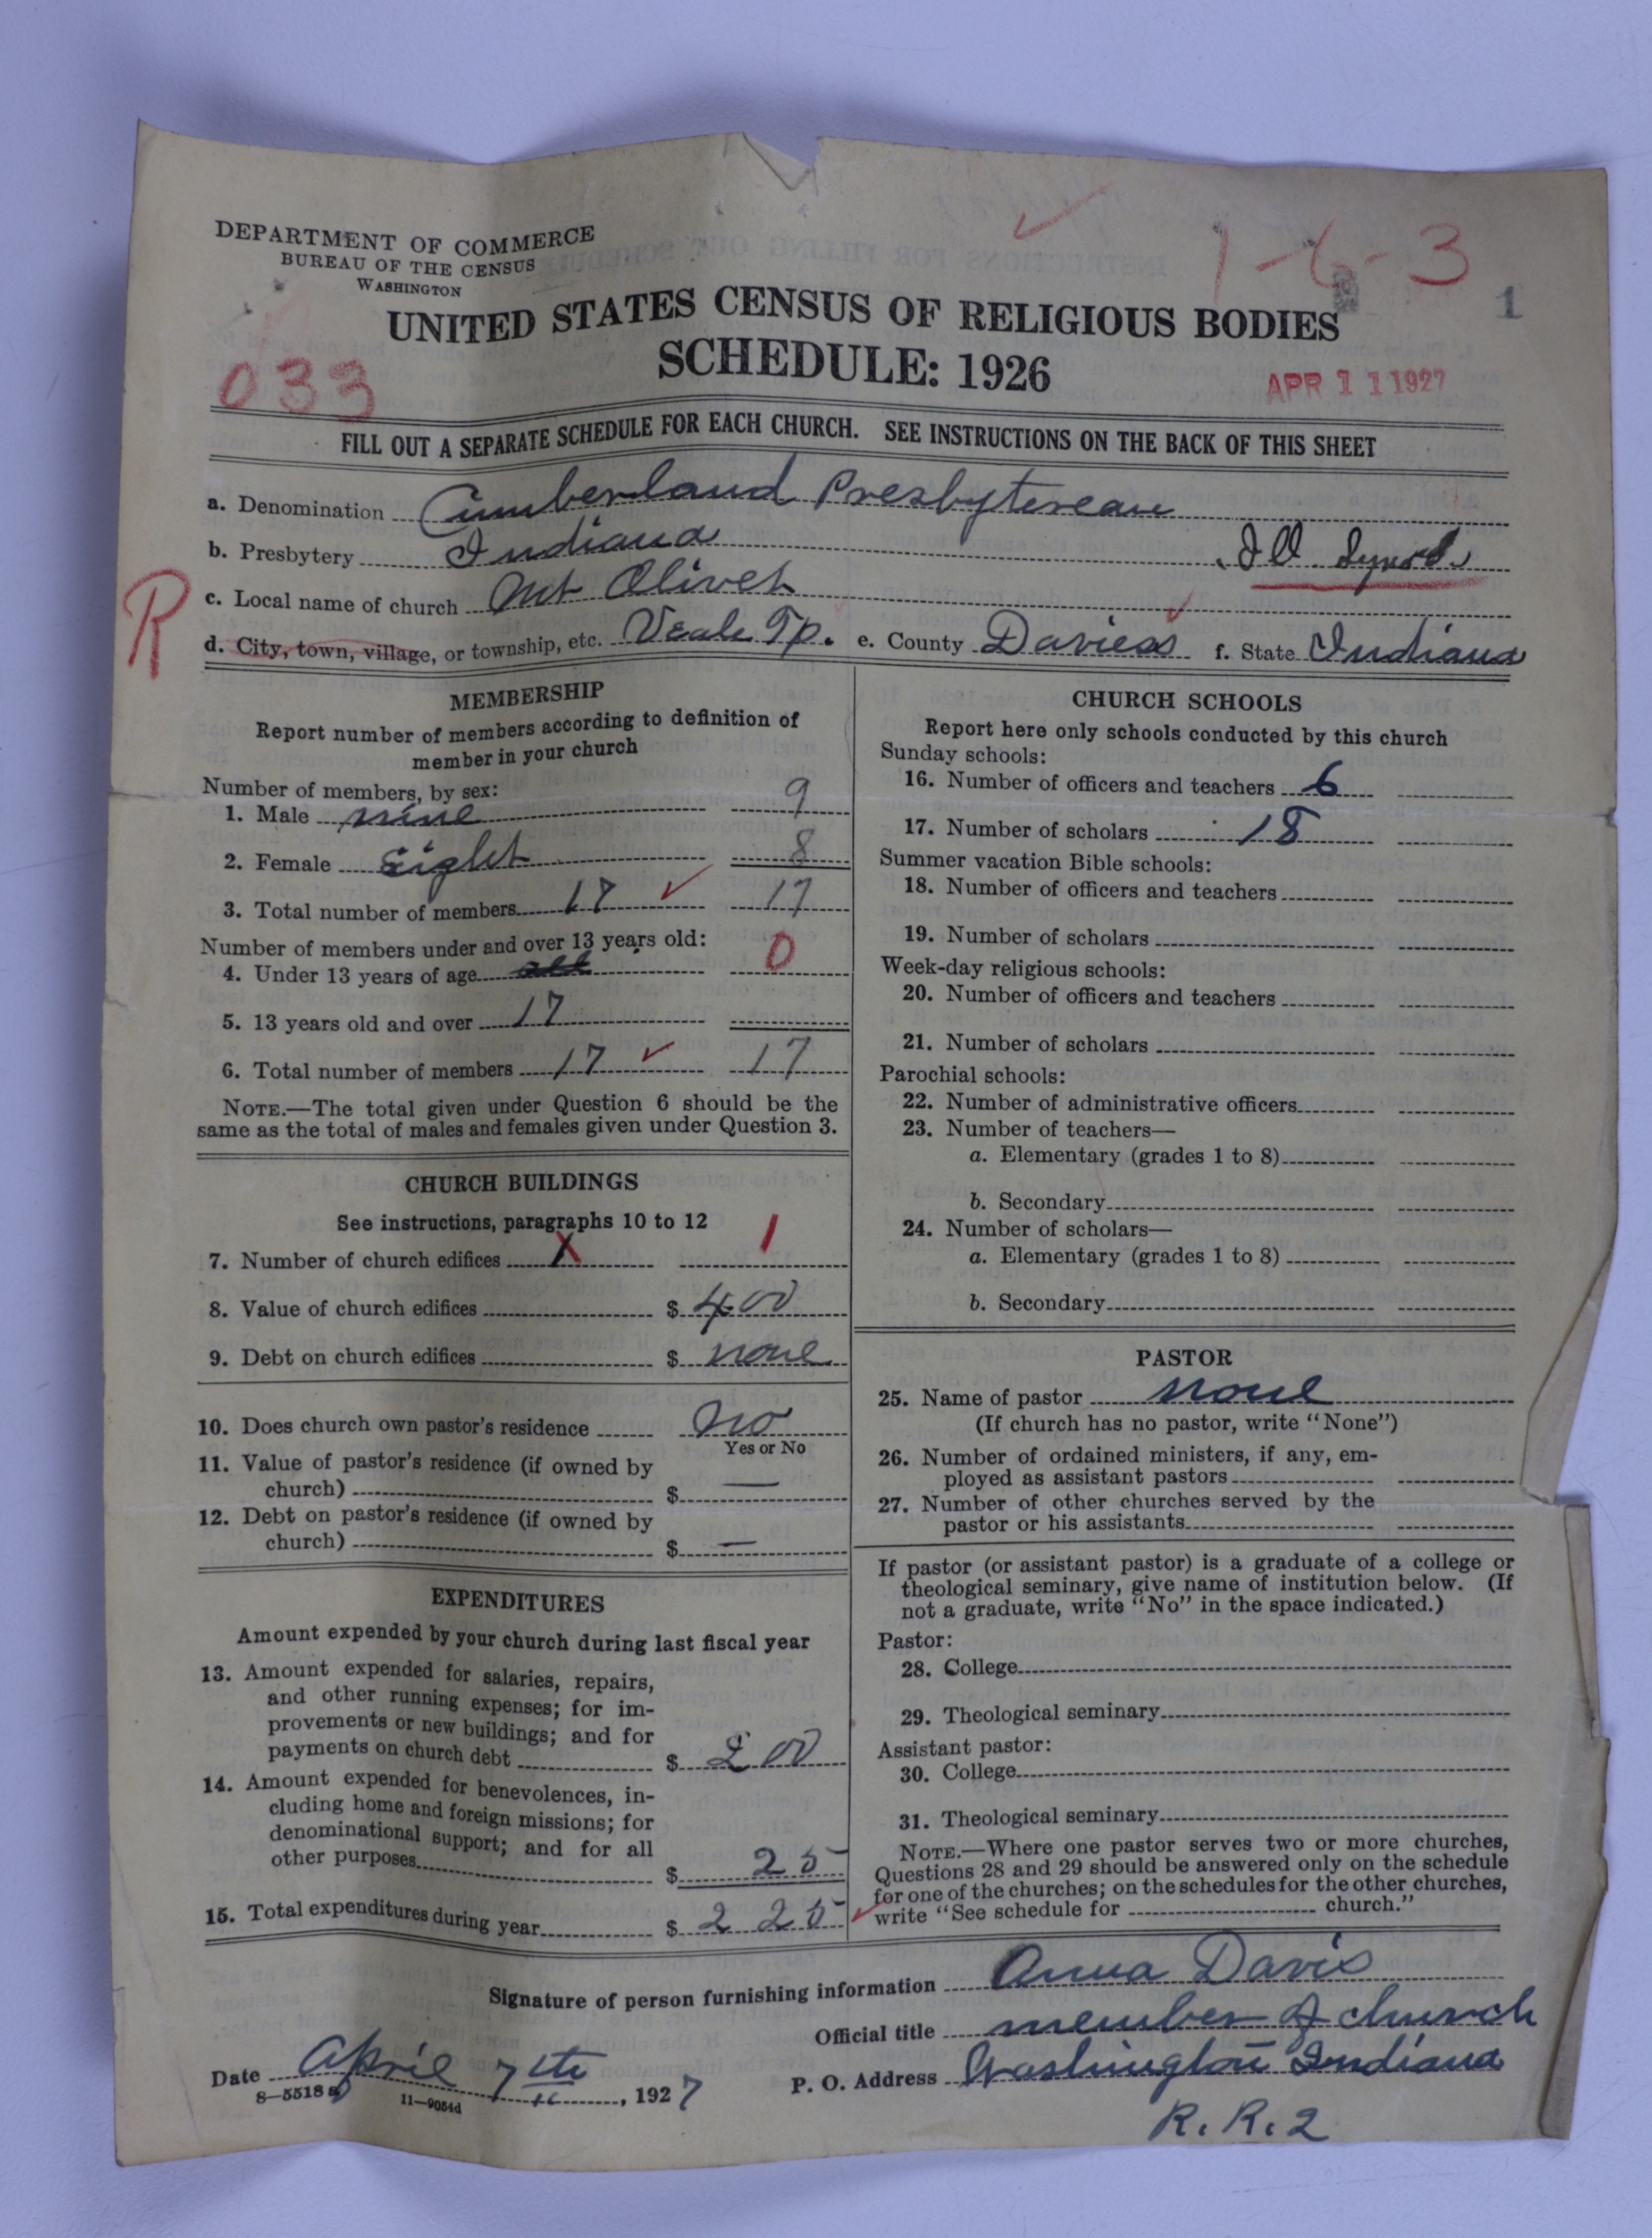 DEPARTMENT OF COMMERCE
BUREAU OF THE CENSUS
WASHINGTON
1-6-3
1
UNITED STATES CENSUS OF RELIGIOUS BODIES
SCHEDULE: 1926
033
APR 11 1927
FILL OUT A SEPARATE SCHEDULE FOR EACH CHURCH. SEE INSTRUCTIONS ON THE BACK OF THIS SHEET
a. Denomination Cumberland Presbyterean
b. Presbytery Indiana Ill. Synod.
c. Local name of church Mt Olivet
R
d. City, town, village, or township, etc. Veale Tp. e. County Daviess f. State Indiana
MEMBERSHIP
Report number of members according to definition of
member in your church
Number of members, by sex:
1. Male nine 9
2. Female Eight 8
3. Total number of members 17 17
Number of members under and over 13 years old:
4. Under 13 years of age all 0
5. 13 years old and over 17
6. Total number of members 17 17
NOTE.—The total given under Question 6 should be the
same as the total of males and females given under Question 3.
CHURCH BUILDINGS
See instructions, paragraphs 10 to 12
7. Number of church edifices X 1
8. Value of church edifices $ 400
9. Debt on church edifices $ none
10. Does church own pastor's residence no
Yes or No
11. Value of pastor's residence (if owned by
church) $ —
12. Debt on pastor's residence (if owned by
church) $ —
EXPENDITURES
Amount expended by your church during last fiscal year
13. Amount expended for salaries, repairs,
and other running expenses; for im-
provements or new buildings; and for
payments on church debt $ 200
14. Amount expended for benevolences, in-
cluding home and foreign missions; for
denominational support; and for all
other purposes $ 25
15. Total expenditures during year $ 225
CHURCH SCHOOLS
Report here only schools conducted by this church
Sunday schools:
16. Number of officers and teachers 6
17. Number of scholars 18
Summer vacation Bible schools:
18. Number of officers and teachers
19. Number of scholars
Week-day religious schools:
20. Number of officers and teachers
21. Number of scholars
Parochial schools:
22. Number of administrative officers
23. Number of teachers—
a. Elementary (grades 1 to 8)
b. Secondary
24. Number of scholars—
a. Elementary (grades 1 to 8)
b. Secondary
PASTOR
25. Name of pastor none
(If church has no pastor, write "None")
26. Number of ordained ministers, if any, em-
ployed as assistant pastors
27. Number of other churches served by the
pastor or his assistants
If pastor (or assistant pastor) is a graduate of a college or
theological seminary, give name of institution below. (If
not a graduate, write "No" in the space indicated.)
Pastor:
28. College
29. Theological seminary
Assistant pastor:
30. College
31. Theological seminary
NOTE.—Where one pastor serves two or more churches,
Questions 28 and 29 should be answered only on the schedule
for one of the churches; on the schedules for the other churches,
write "See schedule for church."
Signature of person furnishing information Anna Davis
Official title member of church
Date April 7th, 1927 P. O. Address Washington Indiana
8-5518 a 11-9054d
R. R. 2